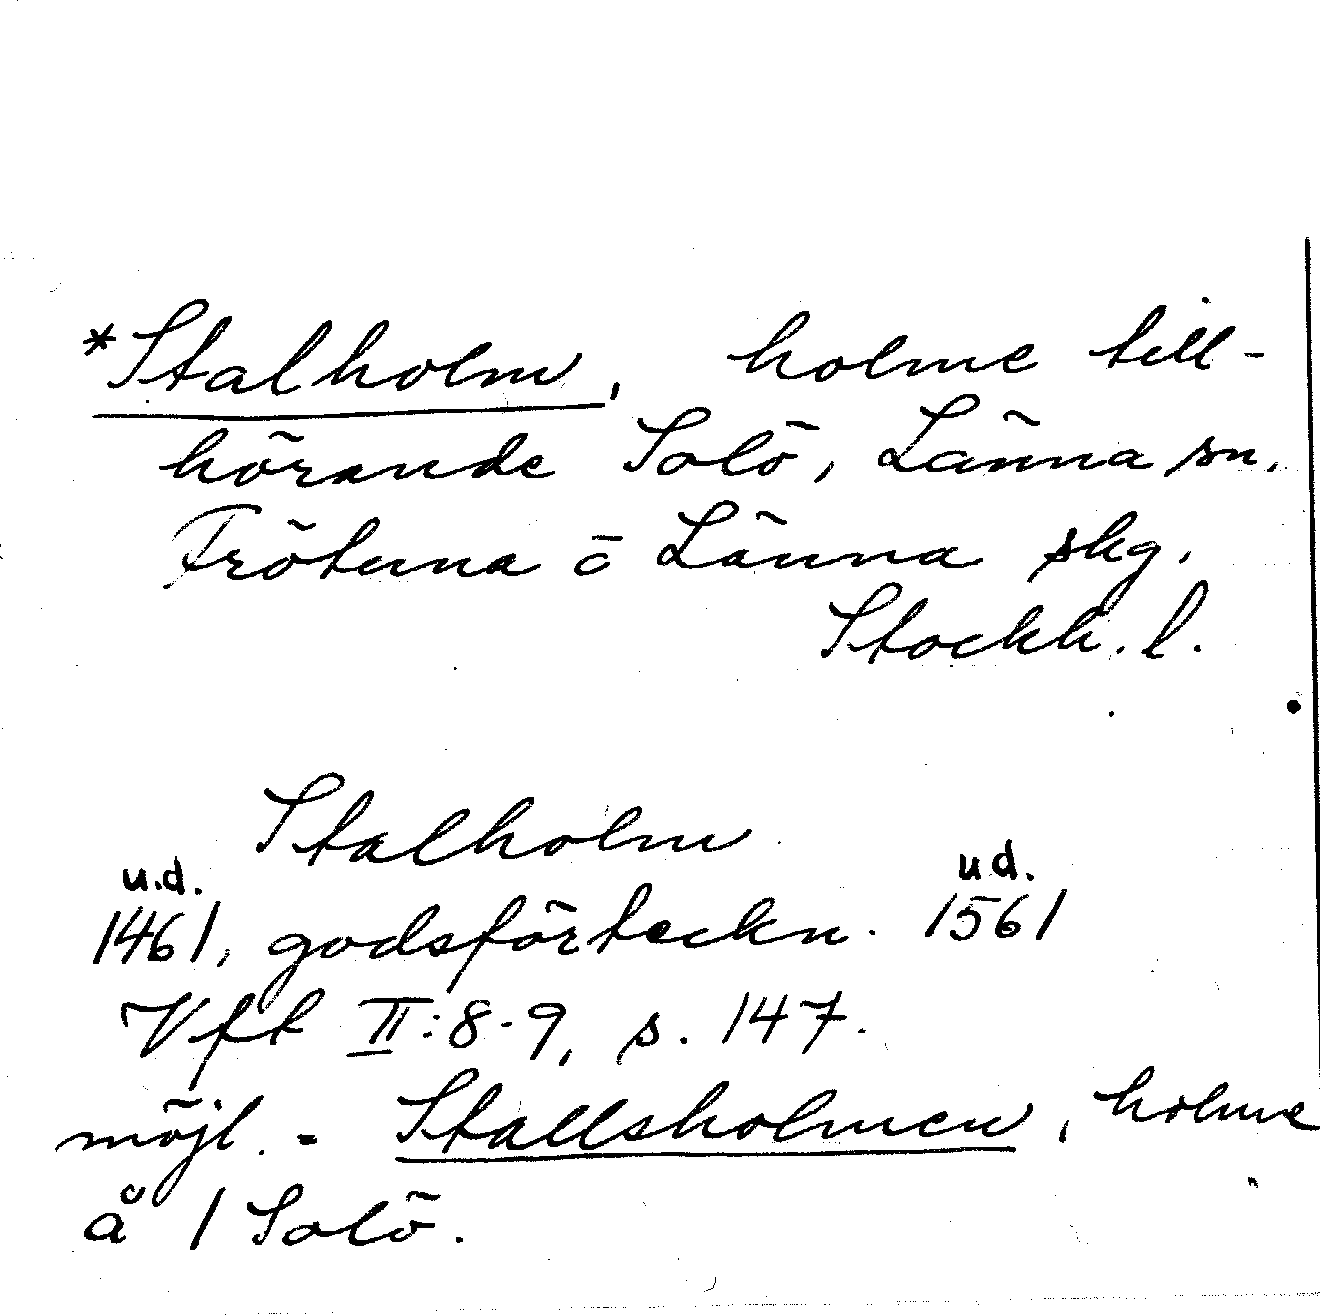 *Stalholm, holme till-
hörande Solö, Länna sn.
Frötuna o Länna skg.
Stockh. l.
Stalholm
u.d. u.d.
1461, godsförteckn. 1561
Vft II:8-9, s. 147.
möjl. = Stallsholmen, holme
å 1 Solö.